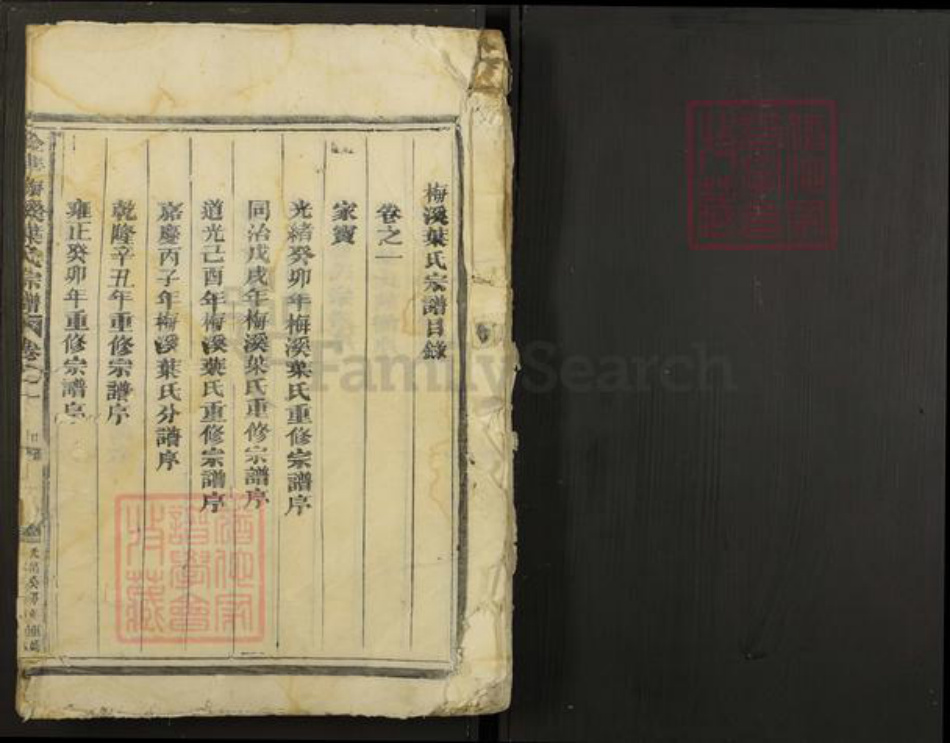 梅溪葉氏宗譜目錄
卷之一
家寶
光緒癸卯年梅溪葉氏重修宗譜序
同治戊戌年梅溪葉氏重修宗譜序
道光己酉年梅溪葉氏重修宗譜序
嘉慶丙子年梅溪葉氏分譜序
乾隆辛丑年重修宗譜序
雍正癸卯年重修宗譜序
梅溪葉氏宗譜
卷之一
FamilySearch